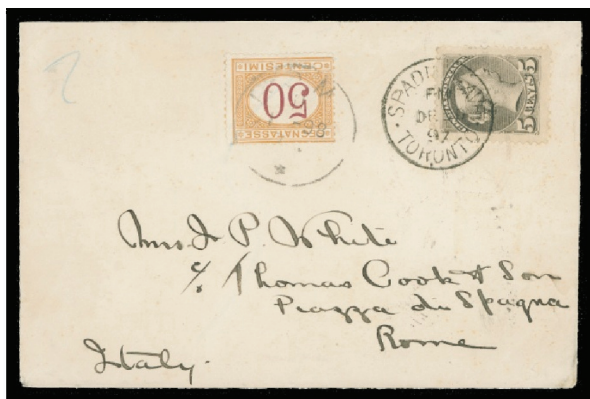 50
CENTESIMI
SEGNATASSE
98
SPADINA AVE
DE
97
TORONTO
5 CENTS 5
Mrs J. P. White
c/o Thomas Cook & Son
Piazza di Spagna
Rome
Italy.